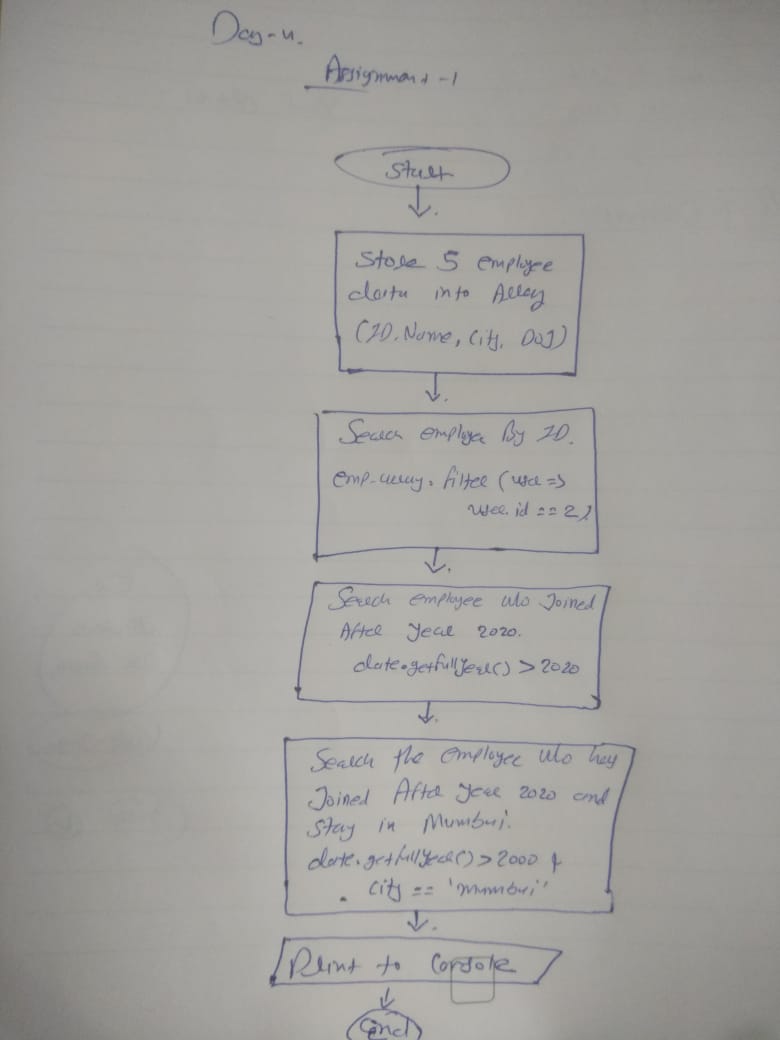 Day-4.
Assignment-1
Start
Store 5 employee
data into Array
(ID, Name, City, DOJ)
Search employee By ID.
emp-array.filter(user =>
user.id == 2)
Search employee who Joined
After year 2020.
date.getfullyear() > 2020
Search the employee who hey
Joined After year 2020 and
stay in Mumbai.
date.getfullyear() > 2000 &
. city == 'mumbai'
Print to Console
End